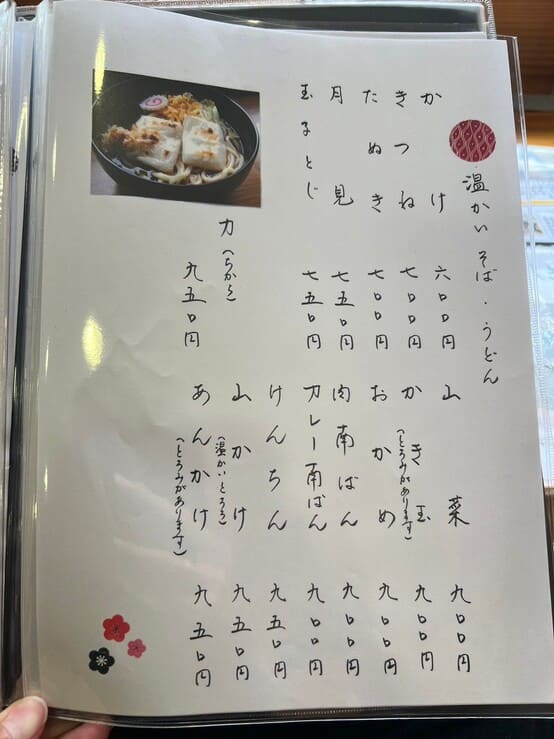 温かい そば・うどん
かけ 六〇〇円
きつね 七〇〇円
たぬき 七〇〇円
月見 七五〇円
玉子とじ 七五〇円
力(ちから) 九五〇円
山菜 九〇〇円
かき玉(とろみがあります) 九〇〇円
おかめ 九〇〇円
肉南ばん 九〇〇円
カレー南ばん 九〇〇円
けんちん 九五〇円
山かけ(温かいとろろ) 九五〇円
あんかけ(とろみがあります) 九五〇円